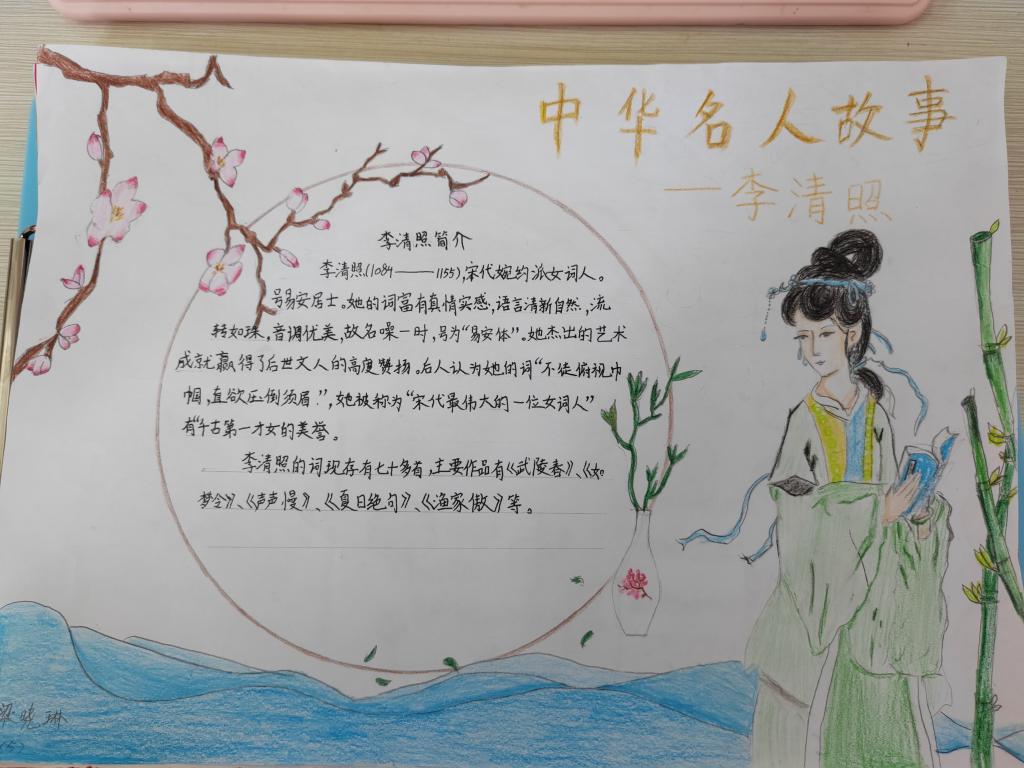 中华名人故事
—李清照
李清照简介
李清照(1084——1155),宋代婉约派女词人。
号易安居士。她的词富有真情实感,语言清新自然,流
转如珠,音调优美,故名噪一时,号为“易安体”。她杰出的艺术
成就赢得了后世文人的高度赞扬。后人认为她的词“不徒俯视巾
帼,直欲压倒须眉!”,她被称为“宋代最伟大的一位女词人”
有“千古第一才女的美誉。
李清照的词现存有七十多首,主要作品有《武陵春》、《如
梦令》、《声声慢》、《夏日绝句》、《渔家傲》等。
梁晓琳
(5)